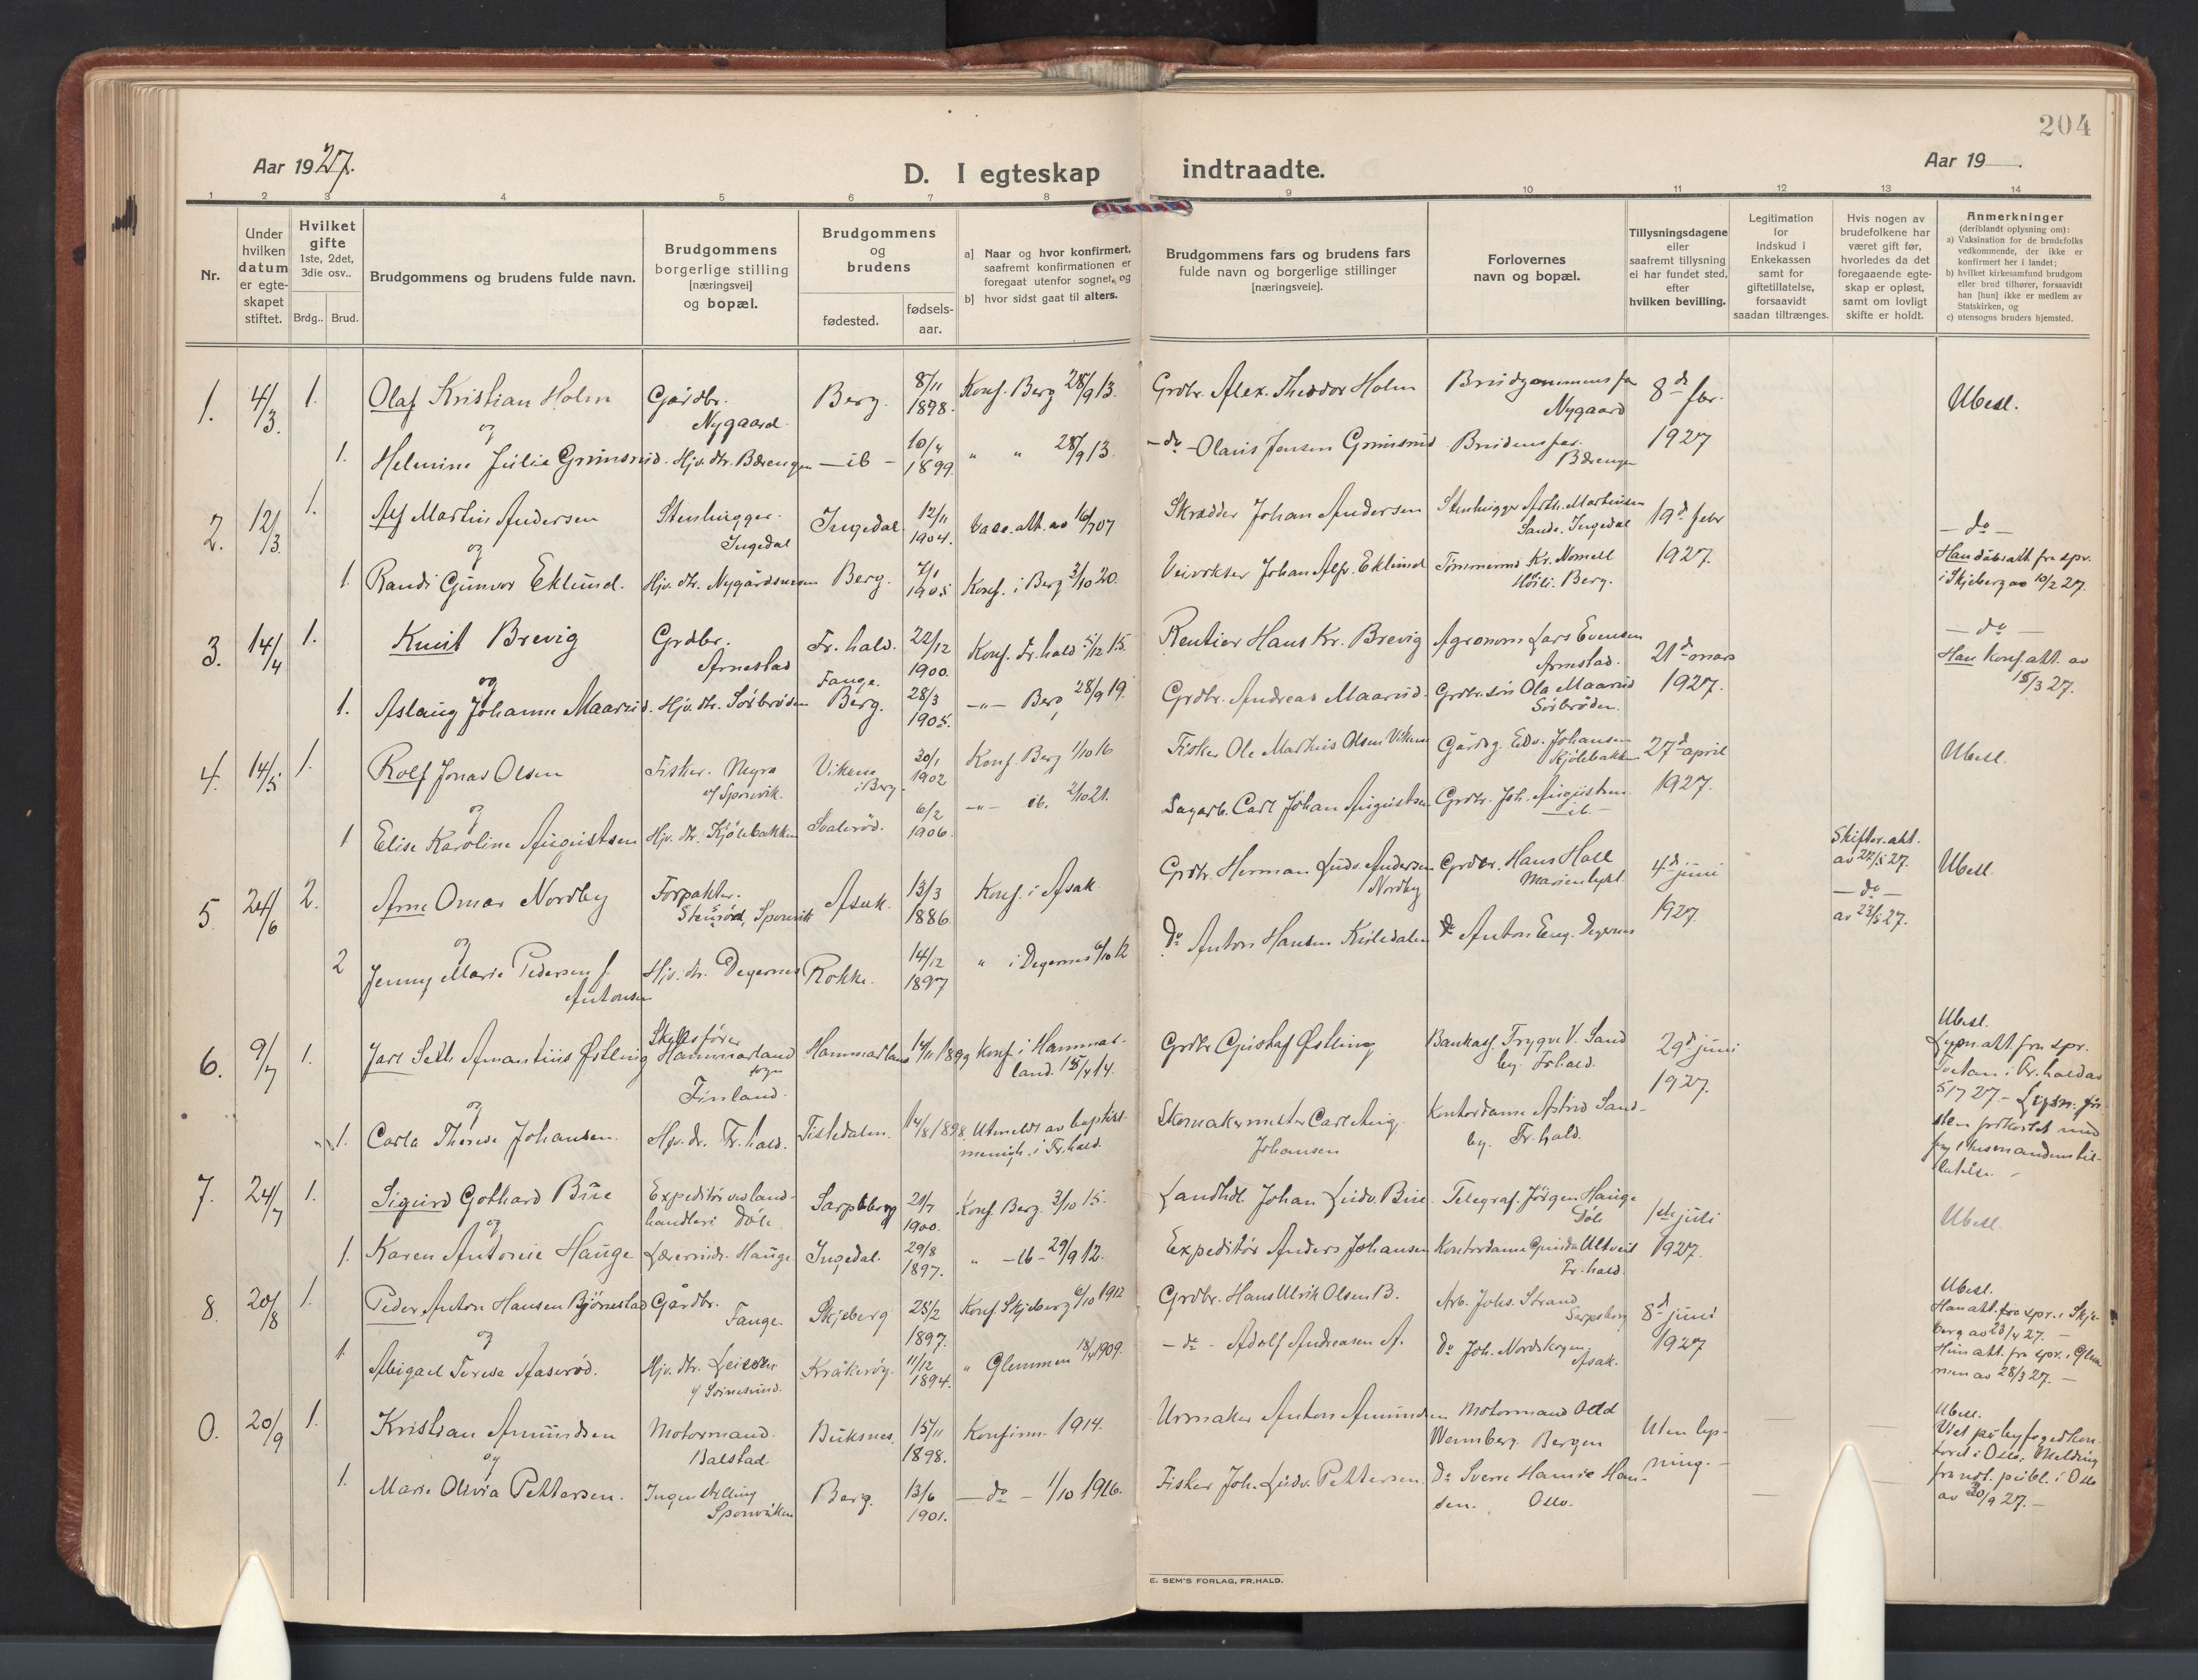 204
Aar 1927.
D. I egteskap indtraadte.
Aar 19 .
1 2 3 4 5 6 7 8 9 10 11 12 13 14
Nr.
Under hvilken datum er egte-skapet stiftet.
Hvilket gifte 1ste, 2det, 3die osv..
Brdg.. Brud.
Brudgommens og brudens fulde navn.
Brudgommens borgerlige stilling [næringsvei] og bopæl.
Brudgommens og brudens
fødested.
fødsels-aar.
a] Naar og hvor konfirmert, saafremt konfirmationen er foregaat utenfor sognet, og
b] hvor sidst gaat til alters.
Brudgommens fars og brudens fars fulde navn og borgerlige stillinger [næringsveie].
Forlovernes navn og bopæl.
Tillysningsdagene eller saafremt tillysning ei har fundet sted, efter hvilken bevilling.
Legitimation for indskud i Enkekassen samt for giftetillatelse, forsaavidt saadan tiltrænges.
Hvis nogen av brudefolkene har været gift før, hvorledes da det foregaaende egte-skap er opløst, samt om lovligt skifte er holdt.
Anmerkninger (deriblandt oplysning om):
a) Vaksination for de brudefolks vedkommende, der ikke er konfirmert her i landet;
b) hvilket kirkesamfund brudgom eller brud tilhører, forsaavidt han [hun] ikke er medlem av Statskirken, og
c) utensogns bruders hjemsted.
1. 4/3. 1. Olaf Kristian Holm Gårdbr. Nygaard. Berg. 8/11 1898. Konf. Berg 28/9 13. Grdbr. Alex. Theodor Holm Brudgommens far Nygaard 8de febr. Ubesl.
og
1. Helmine Julie Grimsrud. Hjv. dtr. Bærengen - ib - 10/4 1899 " " 28/9 13. - do - Olaus Jensen Grimsrud Brudens far. Bærengen 1927
2. 12/3. 1. Alf Martin Andersen Stenhugger. Ingedal Ingedal. 12/11 1904. Vacc. att. av 16/7 07 Skrædder Johan Andersen Stenhugger Arth. Martinsen Sande. Ingedal 19d febr - do -
og
1. Randi Gunvor Eklund. Hjv. dtr. Nygårdsmosen Berg. 7/1 1905 Konf. i Berg 3/10 20. Veivokter Johan Alfr. Eklund Tømmermd Kr. Nomell Høili. Berg. 1927. Han dåbsatt. fra spr. i Skjeberg av 10/2 27.
3. 14/4 1. Knut Brevig Grdbr. Arnestad Fr.hald. 22/12 1900. Konf. Fr.hald 5/12 15. Rentier Hans Kr. Brevig Agronom Lars Evensen Arnestad. 21d mars - do -
Han konf. att. av 15/3 27.
og
1. Aslaug Johanne Maarud. Hjv. dtr. Sørbrøden Fange. Berg. 28/3 1905. -"- Berg 28/9 19. Grdbr. Andreas Maarud. Grdbr. søn Ola Maarud Sørbrøden. 1927.
4. 14/5 1. Rolf Jonas Olsen Fisker. Myra v/ Sponvik. Vikene i Berg. 20/1 1902 Konf. Berg 1/10 16 Fisker Ole Mathis Olsen Vikene Gårdsg. Edv. Johansen Kjølebakken 27d april Ubesl.
og
1 Elise Karoline Augustsen Hjv. dtr. Kjølebakken Svalerød. 6/2 1906. -"- ib. 2/10 21. Sagarb. Carl Johan Augustsen Grdbr. Joh. Augustsen - ib - 1927.
5 24/6 2. Arne Omar Nordby Forpakter. Stensrød, Sponvik Asak. 13/3 1886 Konf. i Asak. Grdbr. Herman Ludv. Andersen Nordby Grdbr. Hans Hall Marienlyst 4d juni Skifter. att. av 27/5 27. Ubesl.
og
2 Jenny Marie Pedersen f. Antonsen Hjv. dtr. Degernes Rokke. 14/12 1897 " i Degernes 6/10 12 do Anton Hansen Kiiledalen do Anton Eng. Degernes 1927. - do - av 23/5 27.
6. 9/7 1. Jarl Seth Amantius Østling Skibsfører Hammarland sogn Finland. Hammarland 14/11 1893 Konf. i Hammarland. 15/4 14. Grdbr Gustaf Østling Bankass. Trygve V. Sandby. Frhald. 29d juni 1927. Ubesl.
Lysn. att. fra spr. Tvetan i Fr.hald av 5/7 27.
og
1. Carla Therese Johansen. Hjv. dr. Fr.hald. Tistedalen. 14/8 1898. Utmeldt av baptistmenigh. i Fr.hald. Skomakermester Carl Aug. Johansen Kontordame Astrid Sandby. Fr.hald.
7. 24/7 1. Sigurd Gothard Bue Expeditør ved landhandleri Døle Sarpsborg 21/7 1900. Konf. Berg. 3/10 15. Landhdl. Johan Ludv. Bue Telegraf. Jörgen Hauge Døle 1ste juli Ubesl.
og
1. Karen Antonie Hauge Lærerinde. Hauge Ingedal. 29/8 1897. " - ib - 29/9 12. Expeditør Anders Johansen Kontordame Gunda Ultveit Fr.hald. 1927.
8. 20/8 1. Peder Anton Hansen Bjørnestad Gårdbr. Fange. Skjeberg 25/2 1897. Konf. Skjeberg 6/10 1912 Grdbr. Hans Ulrik Olsen B. Arb. Johs. Strand Sarpsborg 8d juni Ubesl.
Han att. fra spr. i Skjeberg av 23/4 27. -
og
1. Abigael Terese Aaserød. Hjv. dtr. Kråkerøy. 11/12 1894. " Glemmen 18/4 1909. - do - Adolf Andreasen A. do Joh. Nordskogen. Asak. 1927 Hun att. fra spr. i Glemmen av 28/3 27. -
0. 20/9 1. Kristian Amundsen Motormand. Balstad Buksnes. 15/11 1898. Konfirm. 1914. Urmaker Anton Amundsen Motormand Odd Wennberg. Bergen Uten lysning. - Ubesl.
Viet på byfogedkontoret i Oslo. Melding fra not. publ. i Oslo av 20/9 27. -
og
1. Marie Olivia Pettersen. Ingen stilling Sponvikken Berg. 13/6 1901. - do - 1/10 1916. Fisker Joh. Ludv. Pettersen. do Sverre Hansen. Oslo.
E. SEM'S FORLAG, FR.HALD.